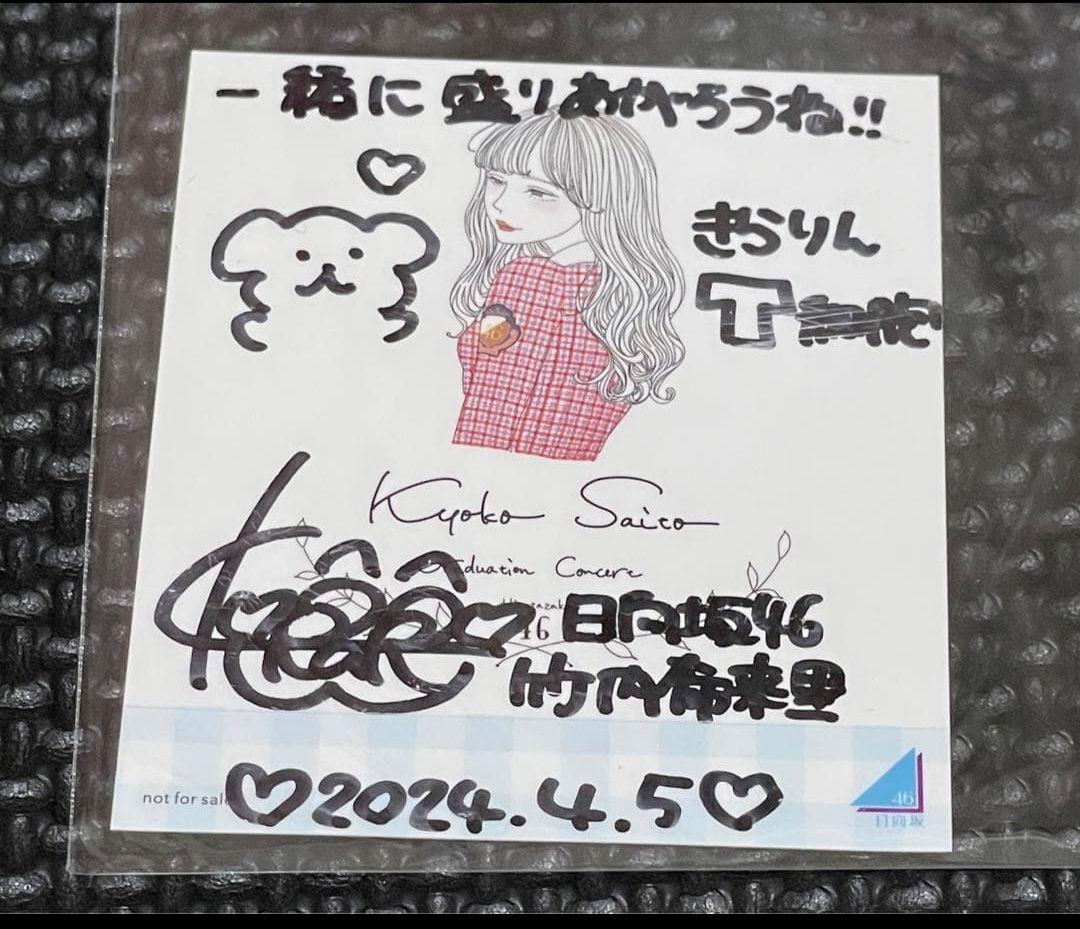 一緒に盛りあがろうね!!
きらりん
T
Kyoko Saito
Graduation Concert
46
日向坂46
竹内希来里
not for sale
♡2024.4.5♡
46
日向坂